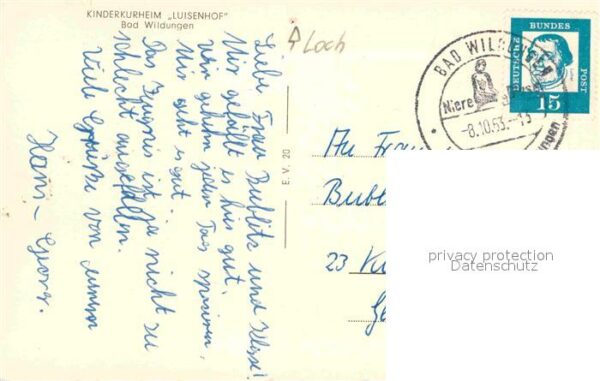 KINDERKURHEIM „LUISENHOF"
Bad Wildungen
Loch
Liebe Frau Bublitz und Klasse!
Mir gefällt es hier gut.
Wir gehen jeden Tag spazieren,
Mir geht es gut.
Das Zeugnis ist ja nicht zu
schlecht ausgefallen.
Viele Grüße von
Hans-Georg.
E. V. 20
BAD WILDUNGEN
Niere
-8.10.63.-13
DEUTSCHE BUNDES POST
15
An Frau
Bubl
23 Ki
privacy protection
Datenschutz